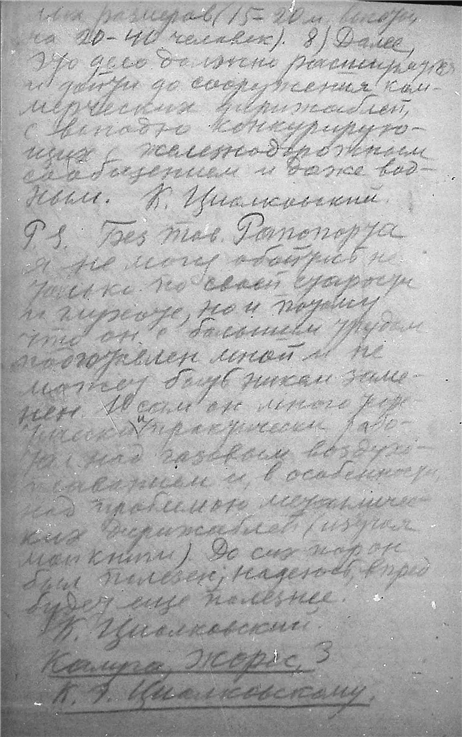 ших размеров (15-20 м. высоты
на 20-40 человек). 8) Далее,
это дело должно расширяться
и дойти до сооружения ком-
мерческих дирижаблей,
с выгодою конкурирую-
щих с железнодорожным
сообщением и даже вод-
ным. К. Циолковский.
P.S. Без тов. Рапопорта
я не могу обойтись не
только по своей старости
и глухоте, но и потому
что он с большим трудом
подготовлен мной и не
может быть никем заме-
нен. И сам он много
и практически рабо-
тал над газовым воздухо-
плаванием и, в особенности,
над проблемою металличес-
ких дирижаблей (изучал
мои книги) До сих пор он
был полезен, надеюсь, впредь
будет еще полезнее.
К. Циолковский
Калуга, Жорес, 3
К. Э. Циолковскому.